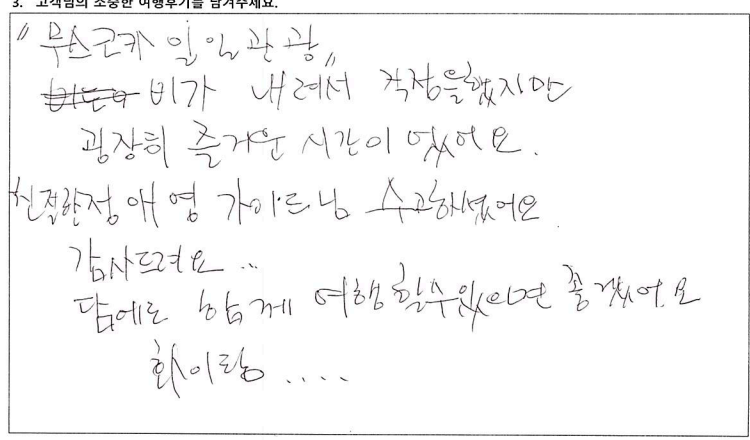 3. 고객님의 소중한 여행후기를 남겨주세요.
"무스코카 일일관광"
비가 내려서 걱정을했지만
굉장히 즐거운 시간이 였어요.
친절한정애영 가이드님 수고하셨어요
감사드려요..
담에도 함께 여행할수있으면 좋겠어요
화이팅 ....